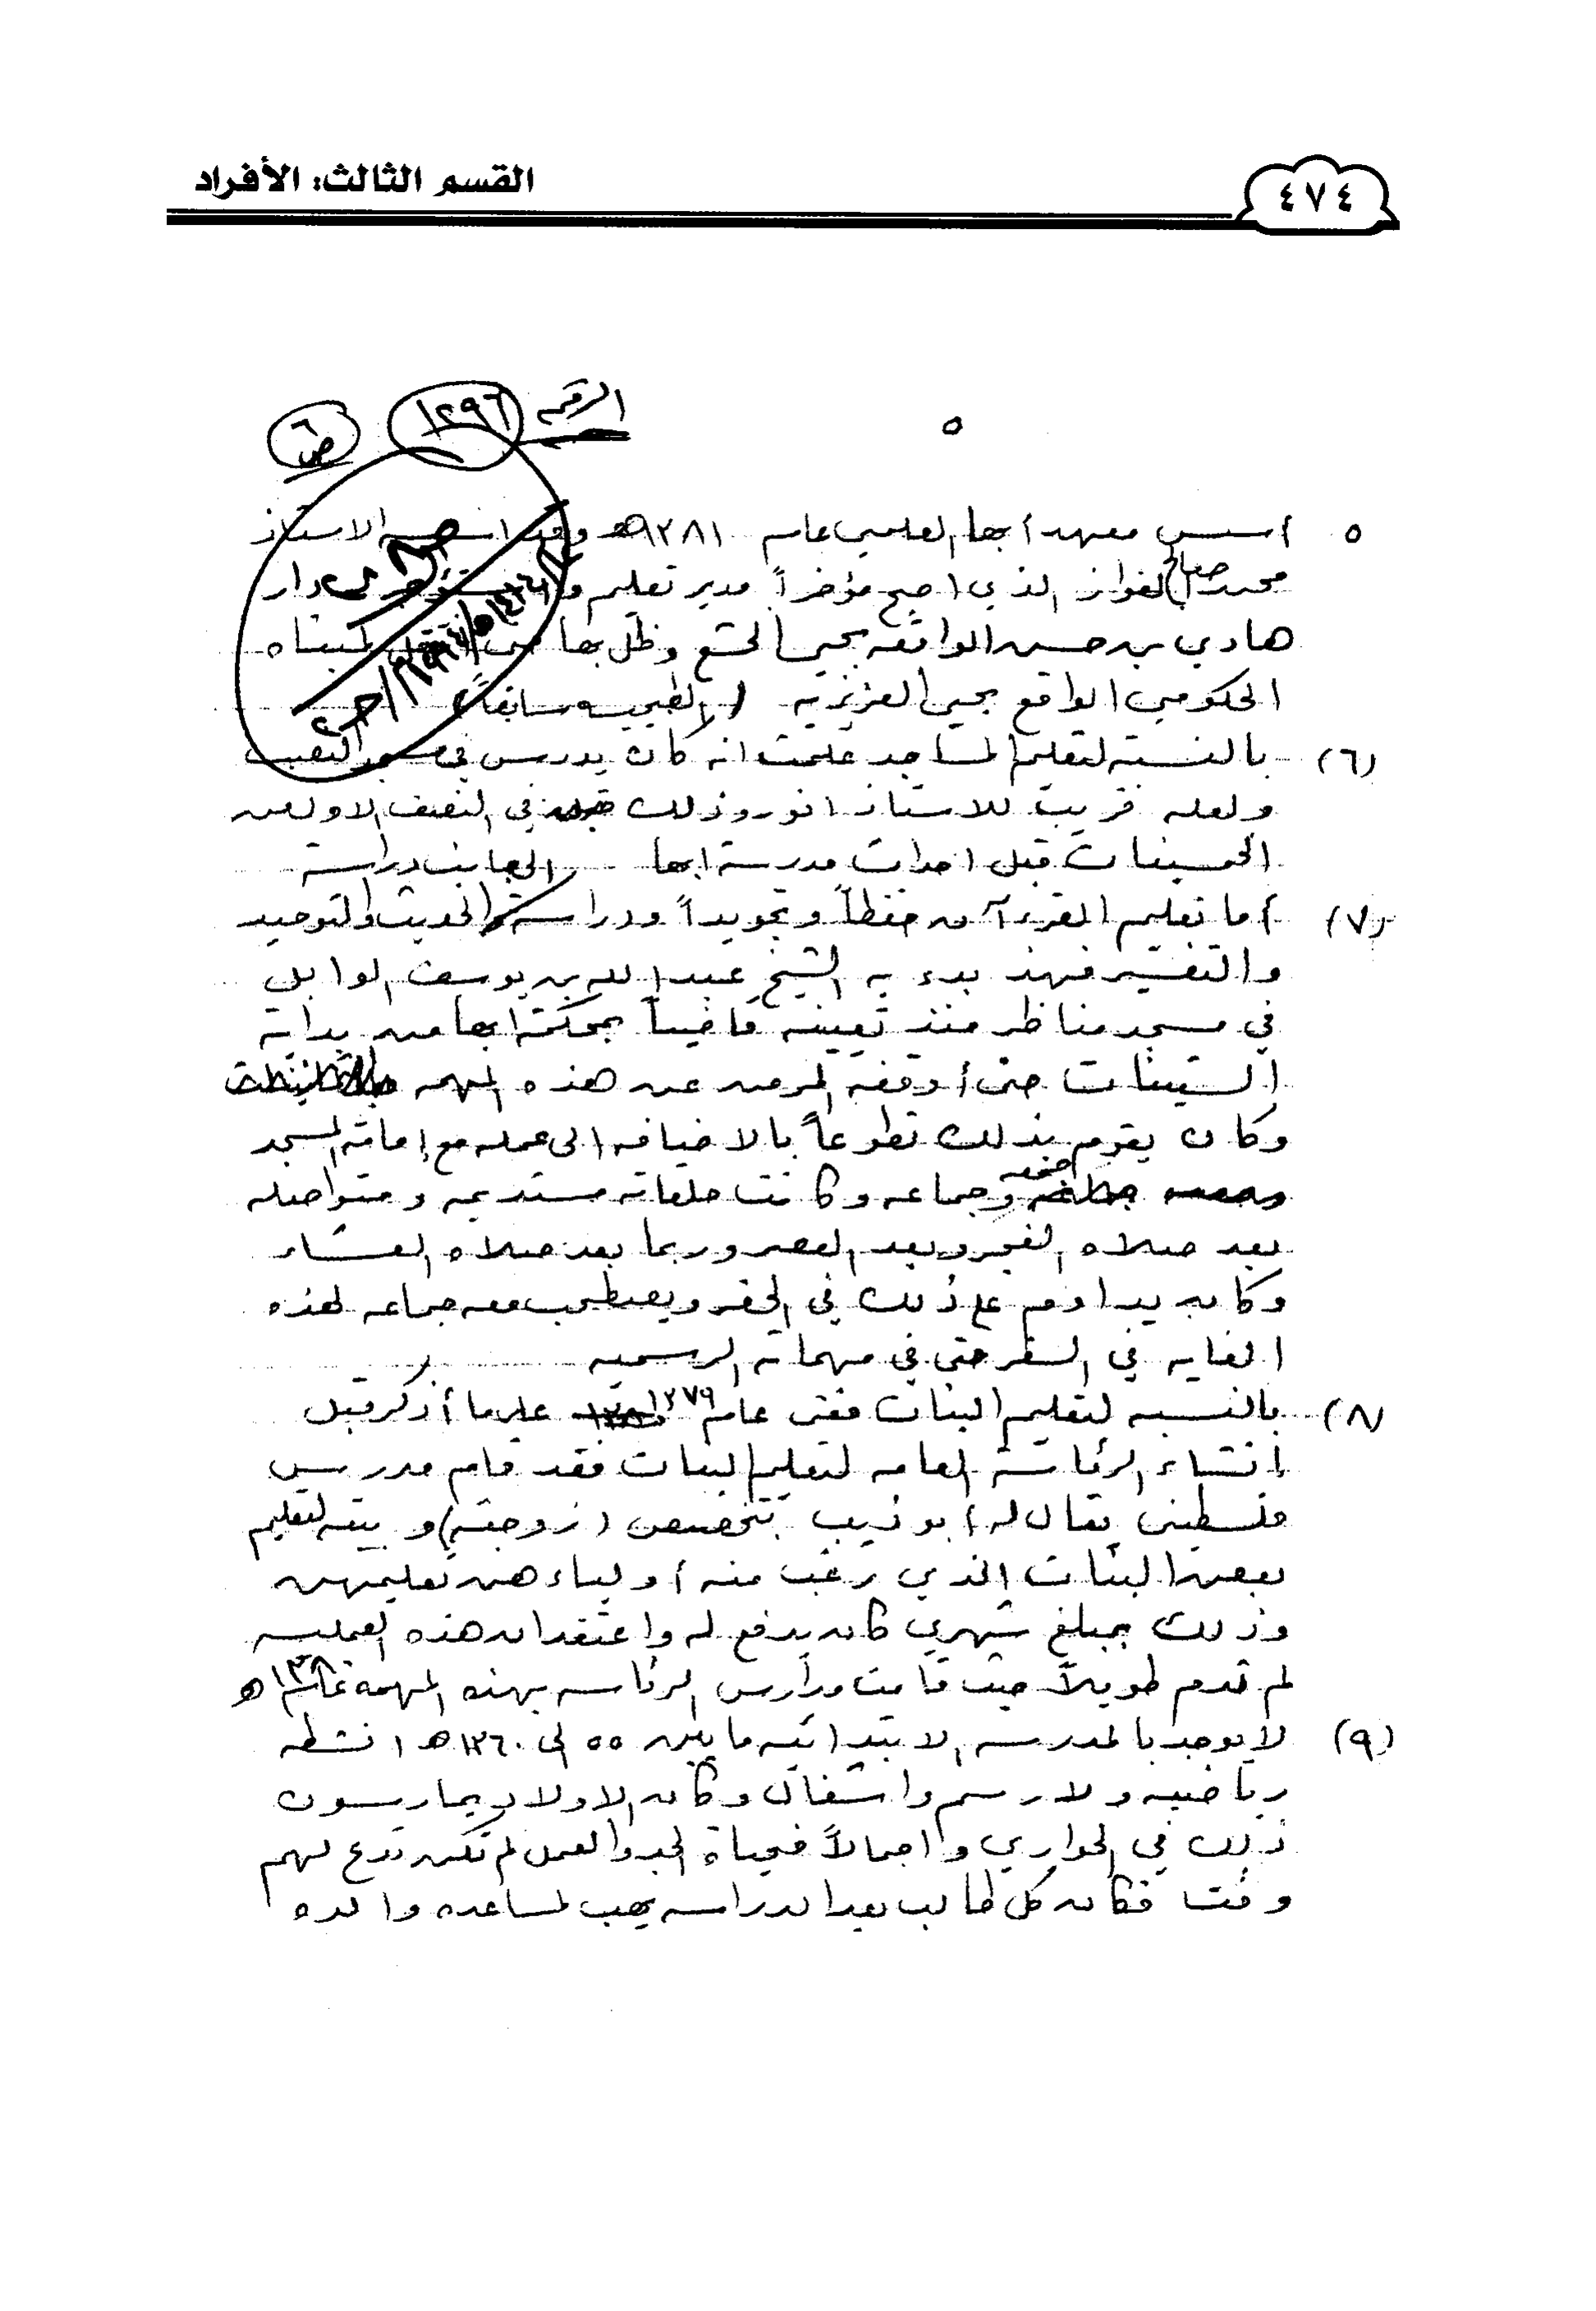 القسم الثالث: الأفراد
٤٧٤
الرقم ١٢٩٦ ص٦
٥
٥ أسس معهد أبها العلمي عام ١٣٨١هـ وقد الاستاذ
محمد صالح الفواز الذي اصبح مؤخراً مدير تعليم دار
هادي بن حسين الواقعه بحي الخشع وظل بها لمبناه
الحكومي الواقع بحي العزيزيه (الطبجيه سابقاً)
(٦) بالنسبه لتعليم المساجد علمت انه كان يدرس في مسجد النصب
ولعله قريب للاستاذ انور وذلك في النصف الاول من
الخمسينات قبل احداث مدرسة ابها الى جانب دراسة
(٧) أما تعليم القرآن حفظاً وتجويداً ودراسة الحديث والتوحيد
والتفسير فهذ بدء به الشيخ عبدالله بن يوسف الوابل
في مسجد مناظر منذ تعيينه قاضياً بمحكمة ابها من بداية
الستينات حتى أوقفه المرض عن هذه المهمه
وكان يقوم بذلك تطوعاً بالاضافه الى عمله مع إمامة المسجد
جمعه وجماعه وكانت حلقاته مستديمه ومتواصله
بعد صلاه الفجر وبعد العصر وربما بعد صلاه العشاء
وكان يداوم على ذلك في الحضر ويصطحب معه جماعه لهذه
الغايه في السفر حتى في مهماته الرسميه
(٨) بالنسبه لتعليم البنات ففي عام ١٣٧٩ على ما أذكر قبل
إنشاء الرئاسة العامه لتعليم البنات فقد قام مدرس
فلسطيني يقال له أبو ذيب بتخصيص (زوجته) وبيته لتعليم
بعض البنات الذي رغب منه أولياءهن تعليمهن
وذلك بمبلغ شهري كان يدفع له واعتقد ان هذه العمليه
لم تدم طويلاً حيث قامت مدارس الرئاسه بهذه المهمة عام هـ
(٩) لا يوجد بالمدرسه الابتدائيه ما بين ٥٥ الى ١٣٦٠هـ انشطه
رياضيه ولا رسم واشغال وكان الاولاد يمارسون
ذلك في الحواري واجمالاً فحياة الجد والعمل لم تكن تدع لهم
وقتا فكان كل طالب بعد الدراسه يهب لمساعده والده